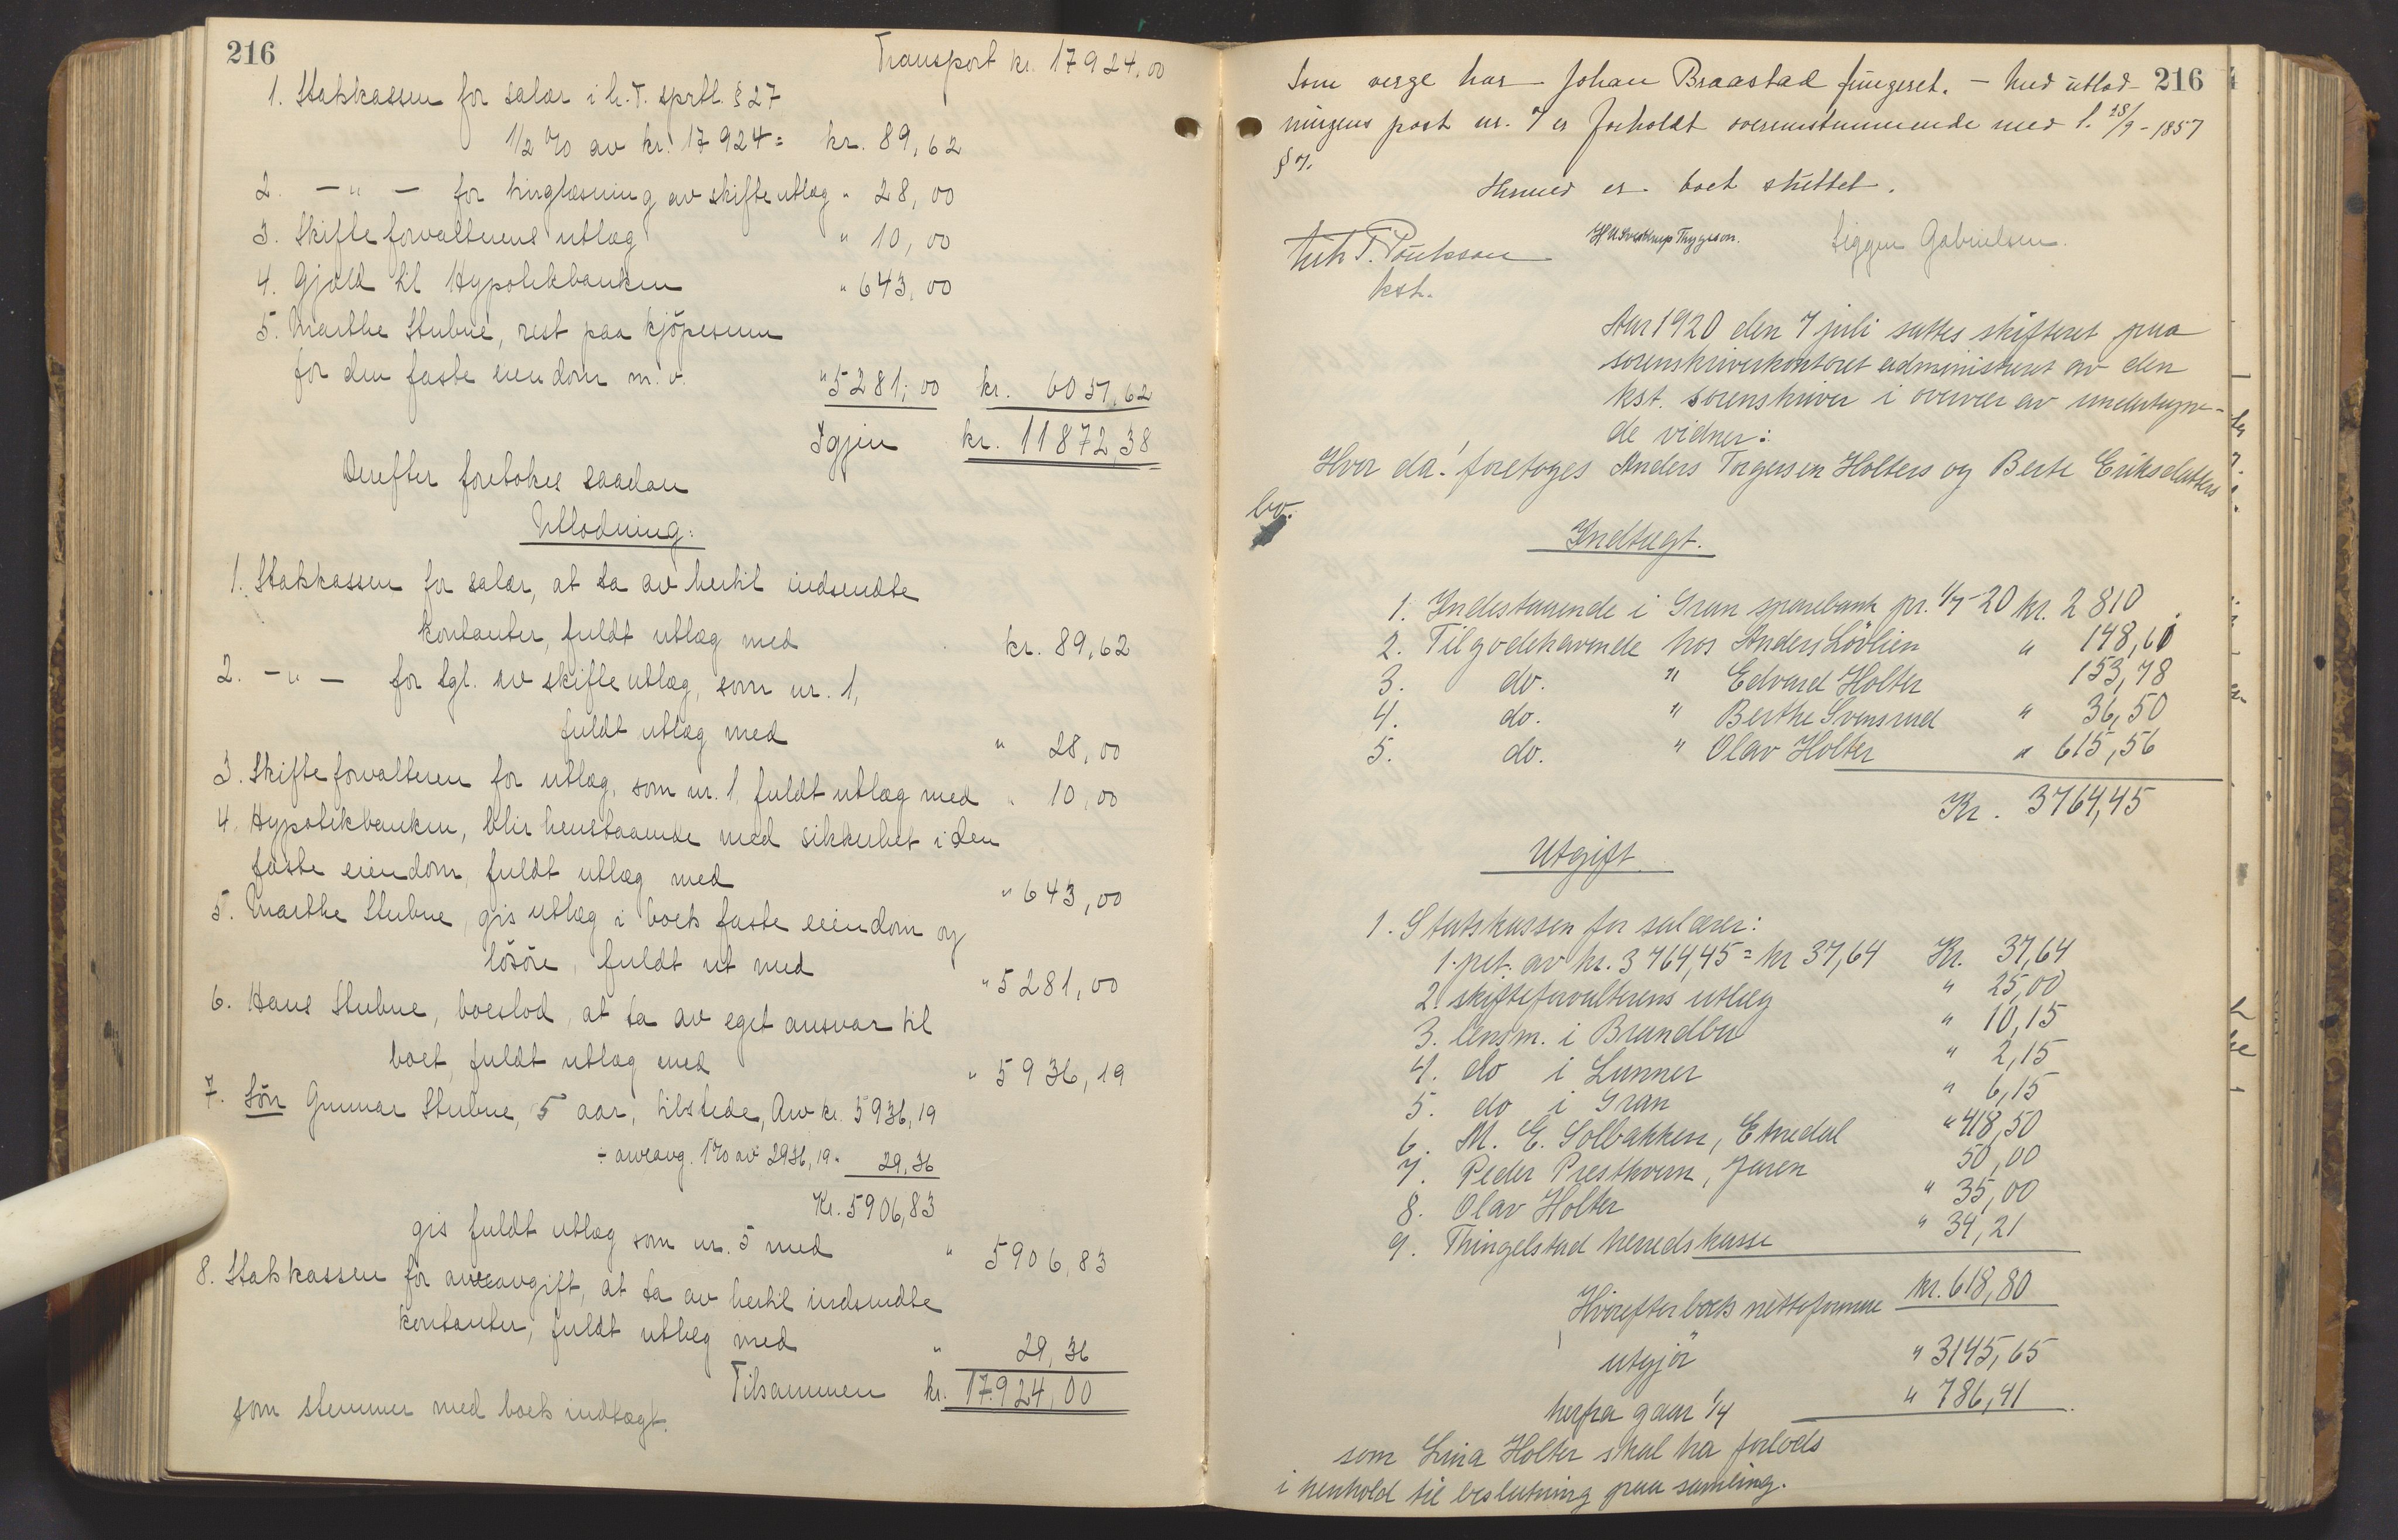 216
Transport kr. 17924,00
1. Statskassen for salær i h.t. sprtl. § 27
1/2 % av kr. 17924 = kr. 89,62
2. — " — for tinglæsning av skifteutlæg " 28,00
3. Skifteforvalterens utlæg " 10,00
4. Gjæld til Hypotekbanken " 643,00
5. Marthe Stubne, rest paa kjöpesum
for den faste eiendom m.v. " 5281,00 kr. 6051,62
Igjen kr. 11872,38
Derefter foretokes saadan
Utlodning:
1. Statskassen for salær, at ta av hertil indsendte
kontanter, fuldt utlæg med kr. 89,62
2. — " — for tgl. av skifteutlæg, som nr. 1,
fuldt utlæg med " 28,00
3. Skifteforvalteren for utlæg, som nr. 1, fuldt utlæg med " 10,00
4. Hypotekbanken, blir henstaaende med sikkerhet i den
faste eiendom, fuldt utlæg med " 643,00
5. Marthe Stubne, gis utlæg i boets faste eiendom og
lösöre, fuldt ut med " 5281,00
6. Hans Stubne, boeslod, at ta av eget ansvar til
boet, fuldt utlæg med " 5936,19
7. Sön Gunnar Stubne, 5 aar, tilstede, Arv kr. 5936,19
÷ arveavg. 1% av 2936,19 = 29,36
Kr. 5906,83
gis fuldt utlæg som nr. 5 med " 5906,83
8. Statskassen for arveavgift, at ta av hertil indsendte
kontanter, fuldt utlæg med " 29,36
Tilsammen kr. 17.924,00
som stemmer med boets indtægt.
Som verge har Johan Braastad fungeret. — Med utlod- 216
ningens post nr. 7 er forholdt overensstemmende med l. 28/9 - 1857
§ 7.
Hermed er boet sluttet.
T. Poulsson
kst.
Tryggeson.
Siggen Gabrielsen.
Aar 1920 den 7 juli sattes skifteret paa
sorenskriverkontoret administreret av den
kst. sorenskriver i overvær av undertegne-
de vidner:
Hvor da: foretoges Anders Torgersen Holters og Berte Eriksdatters
bo.
Indtægt.
1. Indestaaende i Gran sparebank pr. 1/7-20 kr. 2810
2. Tilgodehavende hos Anders Lövlien " 148,61
3. do. " Edvard Holter 153,78
4. do. " Berthe Svensrud " 36,50
5. do. " Olav Holter " 615,56
Kr. 3764,45
Utgift.
1. Statskassen for salærer:
1 pct. av kr. 3764,45 = kr 37,64 Kr. 37,64
2. skifteforvalterens utlæg " 25,00
3. lensm. i Brandbu " 10,15
4. do i Lunner " 2,15
5. do i Gran " 6,15
6. M. E. Solbakken, Etnedal " 418,50
7. Peder Prestkvern, Jaren 50,00
8. Olav Holter " 35,00
9. Thingelstad herredskasse " 34,21
kr. 618,80
Hvorefter boets nettoformue
utgjör " 3145,65
herfra gaar 1/4 " 786,41
som Lina Holter skal ha forlods
i henhold til beslutning paa samling.